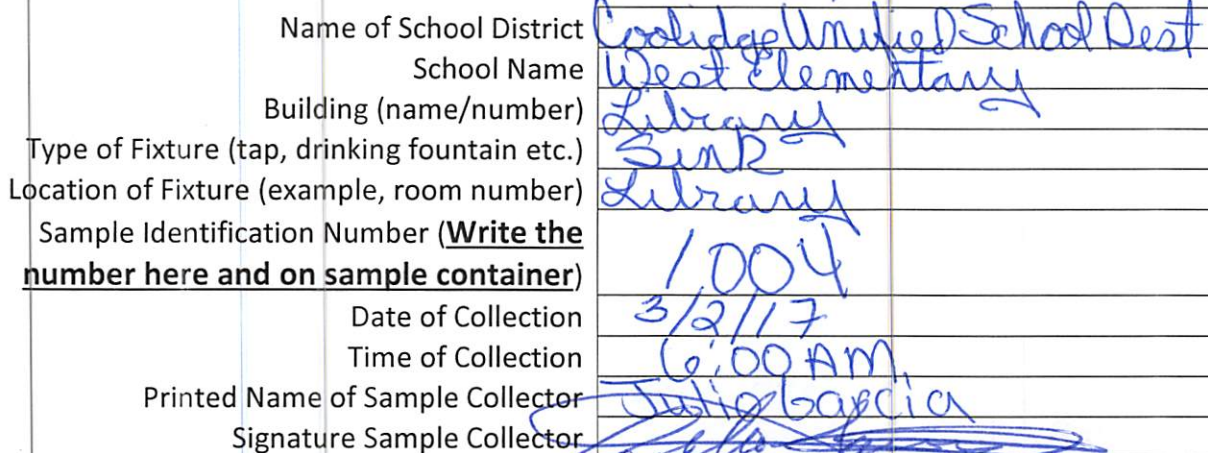 Name of School District Coolidge Unified School Dest
School Name West Elementary
Building (name/number) Library
Type of Fixture (tap, drinking fountain etc.) Sink
Location of Fixture (example, room number) Library
Sample Identification Number (Write the
number here and on sample container) 1004
Date of Collection 3/2/17
Time of Collection 6:00 AM
Printed Name of Sample Collector Julio Garcia
Signature Sample Collector